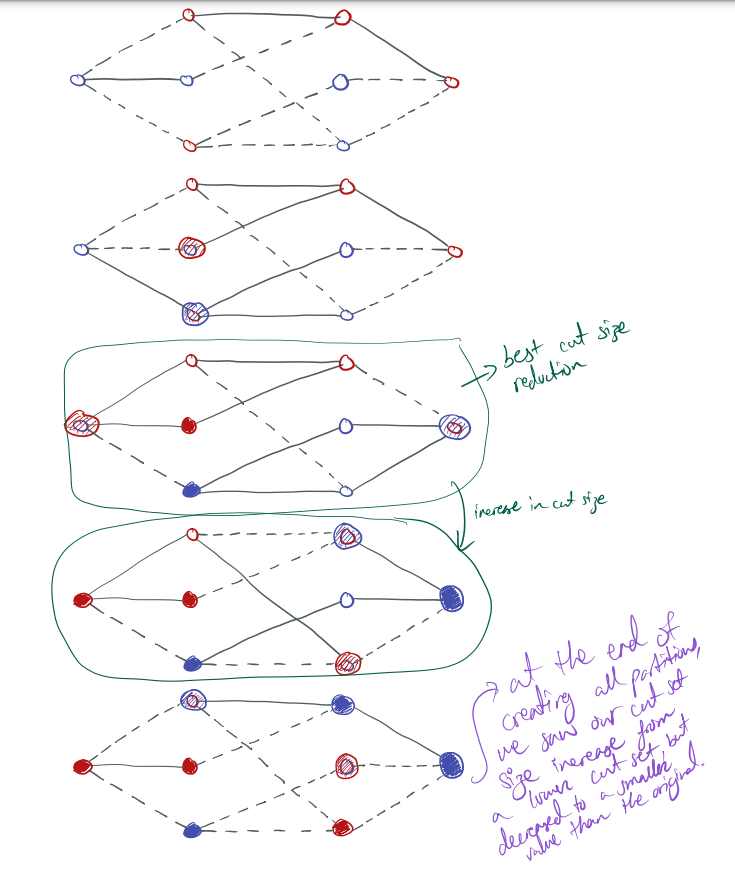 best cut size
reduction
increase in cut size
at the end of
creating all partitions,
we saw our cut set
size increase from
a lower cut set but
decreased to a smaller
value than the original.